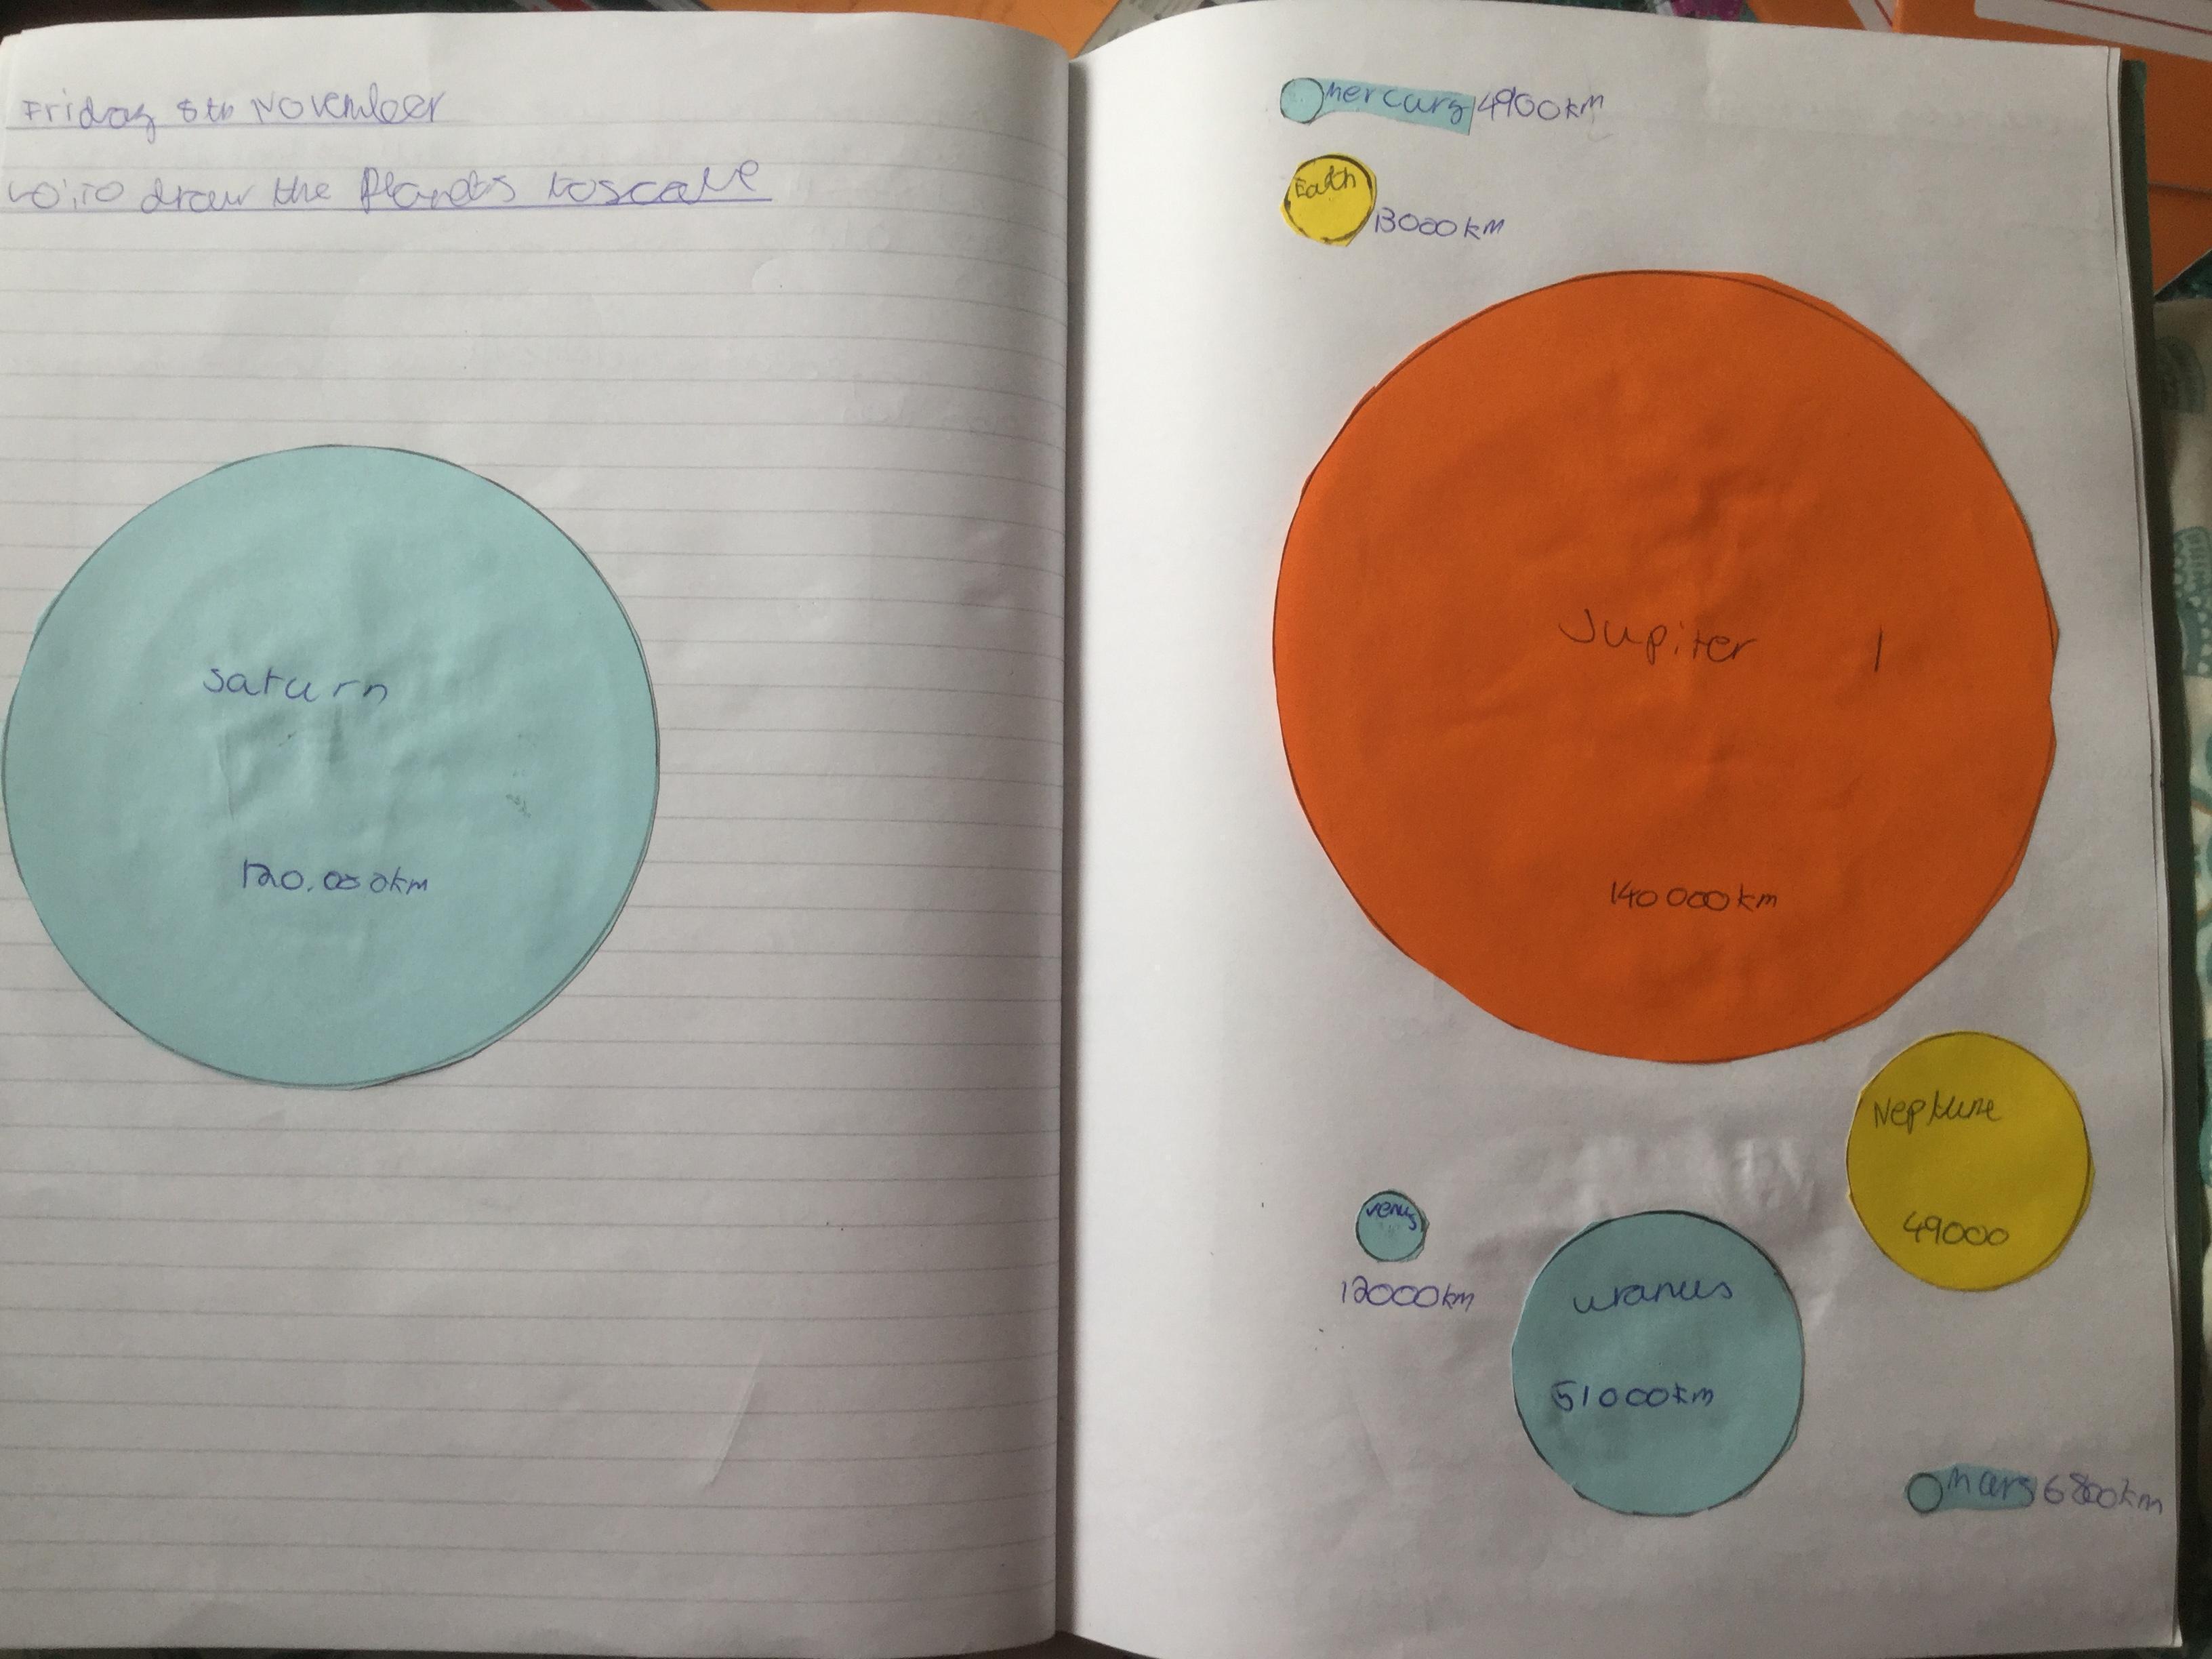 Friday 8th November
LO: To draw the Planets to scale
Saturn
120,000km
Mercury 4900km
Earth
13000km
Jupiter 1
140000km
Neptune
49000
Venus
12000km
uranus
51000km
Mars 6800km